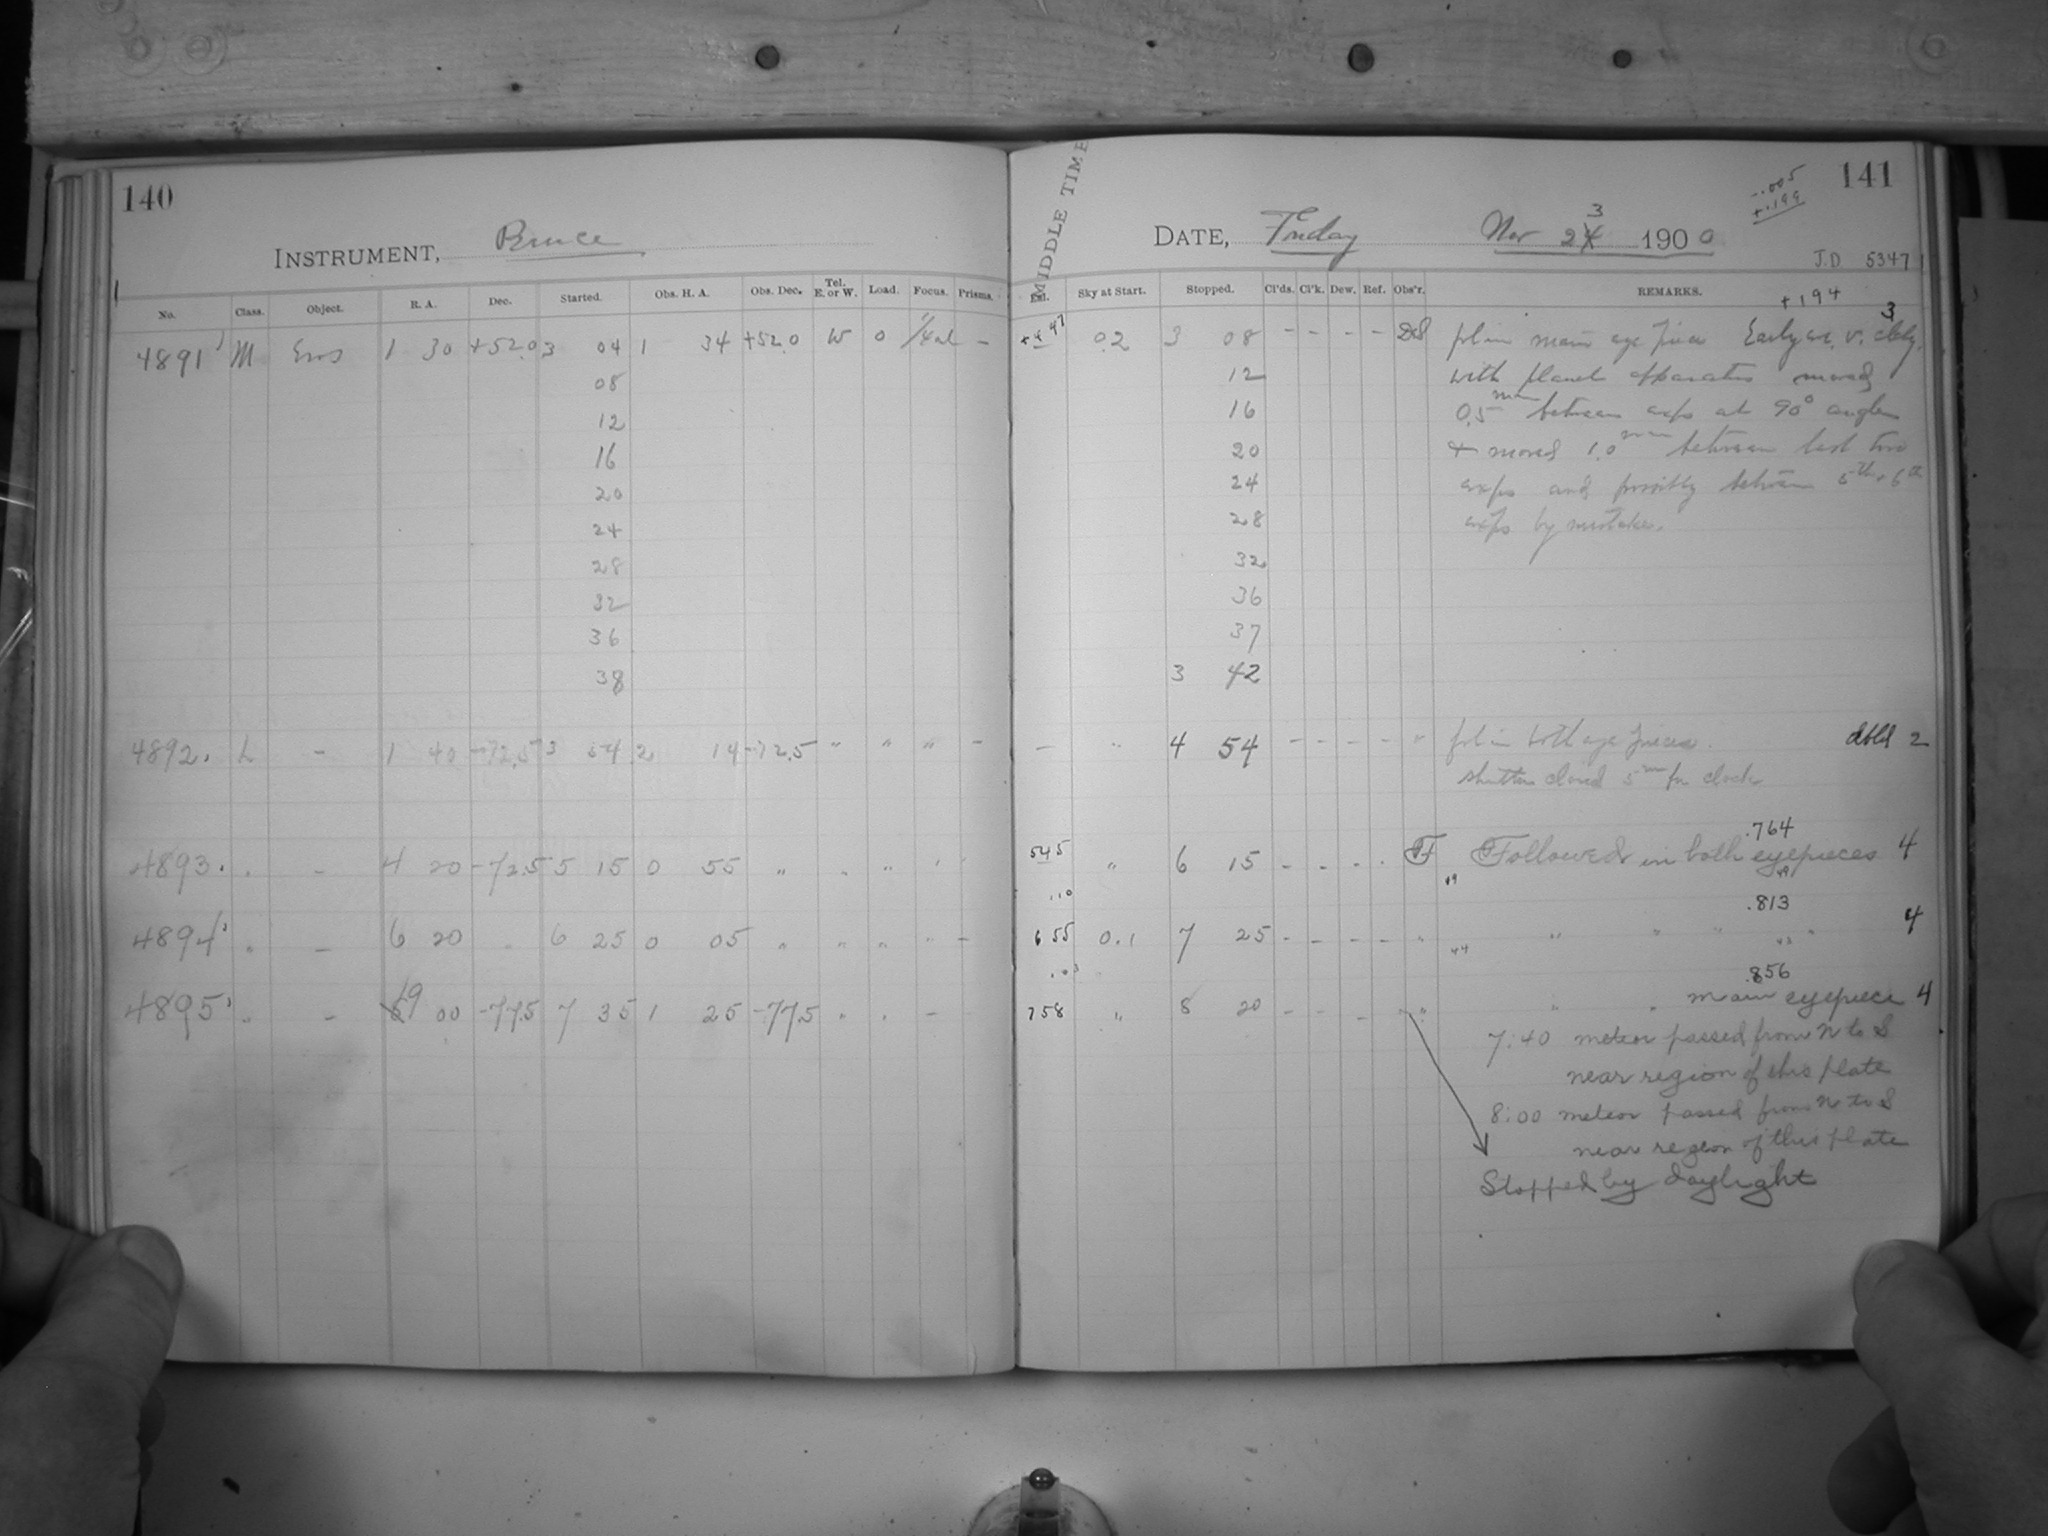 140
INSTRUMENT, Bruce
No. Class. Object. R. A. Dec. Started. Obs. H. A. Obs. Dec. Tel. E. or W. Load. Focus. Prisms.
4891 M Eros 1 30 +52.0 3 04 1 34 +52.0 W 0 –
08
12
16
20
24
28
32
36
38
4892. L – 1 40 -72.5 3 54 2 14 -72.5 " " " –
4893. " – 4 20 -72.5 5 15 0 55 " " "
4894 " – 6 20 " 6 25 0 05 " " " " –
4895 " – 9 00 -77.5 7 35 1 25 -77.5 " " –
141
-.005
+.199
MIDDLE TIME
DATE, Friday Nov 23 1900
J.D 5347
Est. Sky at Start. Stopped. Cl'ds. Cl'k. Dew. Ref. Obs'r. REMARKS.
+194
3
0.2 3 08 – – – – fol in main eye piece
12 with planet apparatus moved
16 0.5 mm between exps at 90° angles
20 + moved 1.0 mm between last two
24 exps and possibly between 5th + 6th
28 exps by mistake.
32
36
37
3 42
– " 4 54 – – – – " fol in both eye pieces. dbld 2
shutter closed 5 m for clock
.764
545 " 6 15 – – – – F Followed in both eyepieces 4
49 49
.10 .813
655 0.1 7 25 – – – – " " " " " 4
44
.856
758 " 8 20 – – – " " " main eyepiece 4
7:40 meteor passed from N to S
near region of this plate
8:00 meteor passed from N to S
near region of this plate
Stopped by daylight